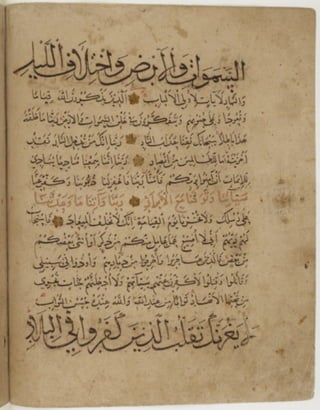 السموات والأرض واختلاف الليل
والنهار لآيات لأولي الألباب الذين يذكرون الله قياما
وقعودا وعلى جنوبهم ويتفكرون في خلق السموات والأرض ربنا ما خلقت
هذا باطلا سبحانك فقنا عذاب النار ربنا إنك من تدخل النار فقد
أخزيته وما للظالمين من أنصار ربنا إننا سمعنا مناديا ينادي
للإيمان أن آمنوا بربكم فآمنا ربنا فاغفر لنا ذنوبنا وكفر عنا
سيئاتنا وتوفنا مع الأبرار ربنا وآتنا ما وعدتنا
على رسلك ولا تخزنا يوم القيامة إنك لا تخلف الميعاد فاستجاب
لهم ربهم أني لا أضيع عمل عامل منكم من ذكر أو أنثى بعضكم
من بعض فالذين هاجروا وأخرجوا من ديارهم وأوذوا في سبيلي
وقاتلوا وقتلوا لأكفرن عنهم سيئاتهم ولأدخلنهم جنات تجري
من تحتها الأنهار ثوابا من عند الله والله عنده حسن الثواب
لا يغرنك تقلب الذين كفروا في البلاد